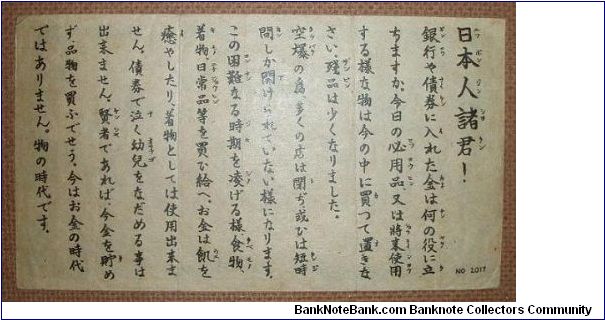 日本人諸君！
銀行や債券に入れた金は何の役に立
ちますか、今日の必用品又は將來使用
する樣な物は今の中に買つて置きな
さい 殘品は少くなりました。
空爆の爲多くの店は閉ぢ、或ひは短時
間しか開けられていない樣になります。
この困難なる時期を凌げる樣、食物、
着物、日常品等を買ひ給へ。お金は飢を
癒やしたり、着物としては使用出來ま
せん。債券で泣く幼兒をなだめる事は
出來ません。賢者であれば、今金を貯め
ず、品物を買ふでせう。今はお金の時代
ではありません。物の時代です。
NO 2017
BankNoteBank.com Banknote Collectors Community